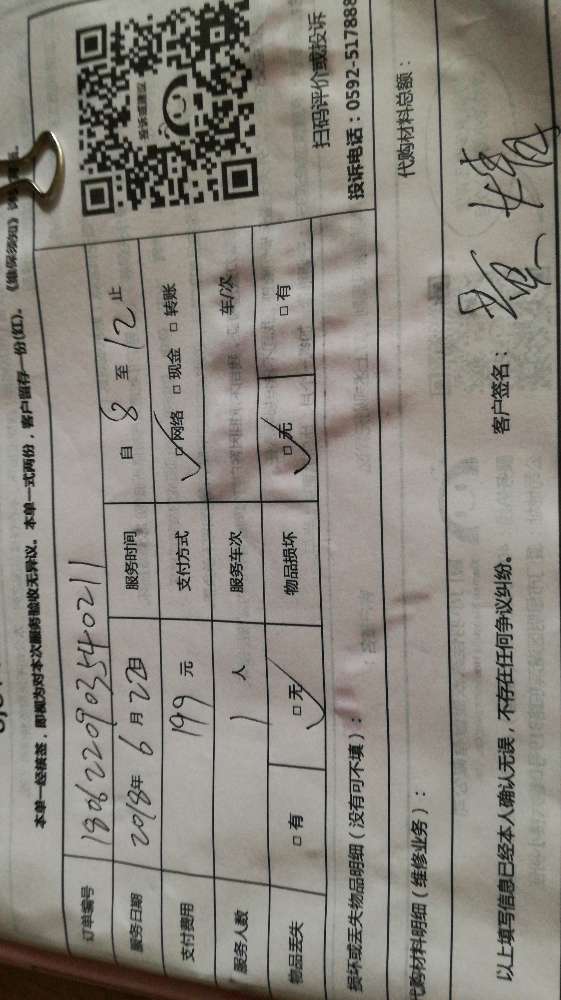 本单一经核签，即视为对本次服务验收无异议。本单一式两份，客户留存一份(红)。《维保须知》
订单编号 1806220903540211
服务日期 2018年 6月 22日 服务时间 自 8 至 12 止
支付费用 199 元 支付方式 ☑网络 □现金 □转账
服务人数 1 人 服务车次 车/次
物品丢失 □有 ☑无 物品损坏 ☑无 □有
投诉或建议
扫码评价或投诉
投诉电话：0592-517888
损坏或丢失物品明细（没有可不填）：
代购材料明细（维修业务）： 代购材料总额：
以上填写信息已经本人确认无误，不存在任何争议纠纷。 客户签名：